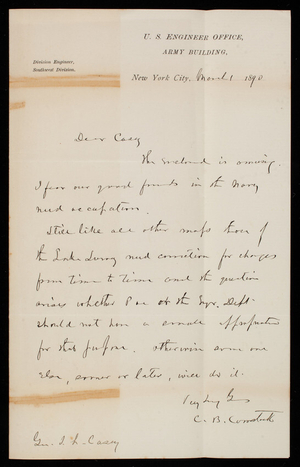 U. S. ENGINEER OFFICE,
ARMY BUILDING,
Division Engineer,
Southwest Division.
New York City, March 1 1890
Dear Casey
The enclosed is amusing.
I fear our good friends in the Navy
need occupation.
Still like all other maps those of
the Lake Survey need correction for changes
from time to time and the question
arises whether P or the Engr. Dept.
should not have a small appropriation
for that purpose. Otherwise some one
else, sooner or later, will do it.
Very truly Yrs
C. B. Comstock
Gen. T. L. Casey